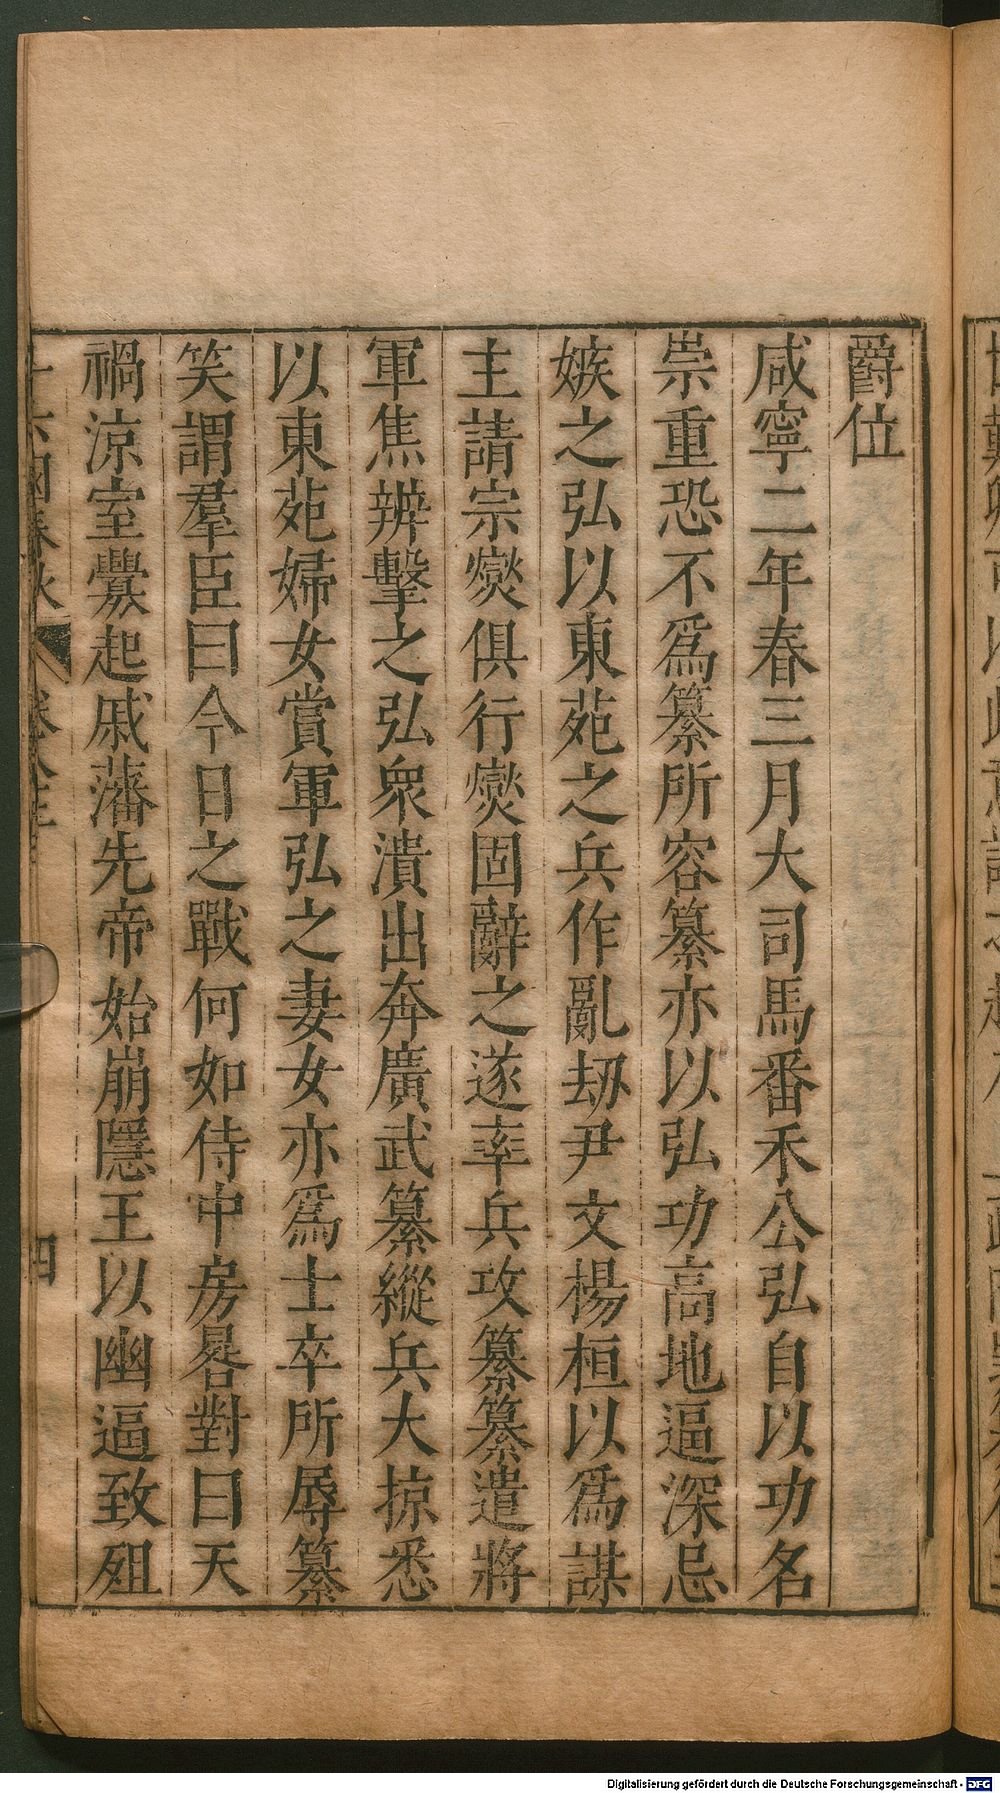 爵位
咸寧二年春三月大司馬番禾公弘自以功名
崇重恐不爲纂所容纂亦以弘功高地逼深忌
嫉之弘以東苑之兵作亂劫尹文楊桓以爲謀
主請宗燮俱行燮固辭之遂率兵攻纂纂遣將
軍焦辨擊之弘衆潰出奔廣武纂縱兵大掠悉
以東苑婦女賞軍弘之妻女亦爲士卒所辱纂
笑謂羣臣曰今日之戰何如侍中房晷對曰天
禍涼室釁起戚藩先帝始崩隱王以幽逼致殂
十六國春秋 卷 四
Digitalisierung gefördert durch die Deutsche Forschungsgemeinschaft - DFG